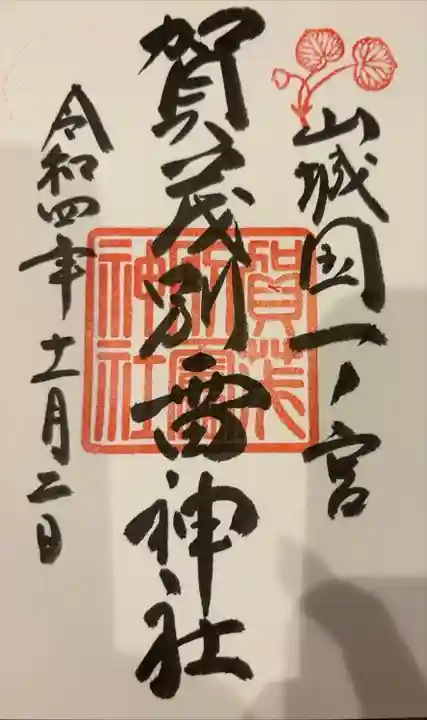 山城国一ノ宮
賀茂別雷神社
賀茂別雷神社
令和四年十一月二日